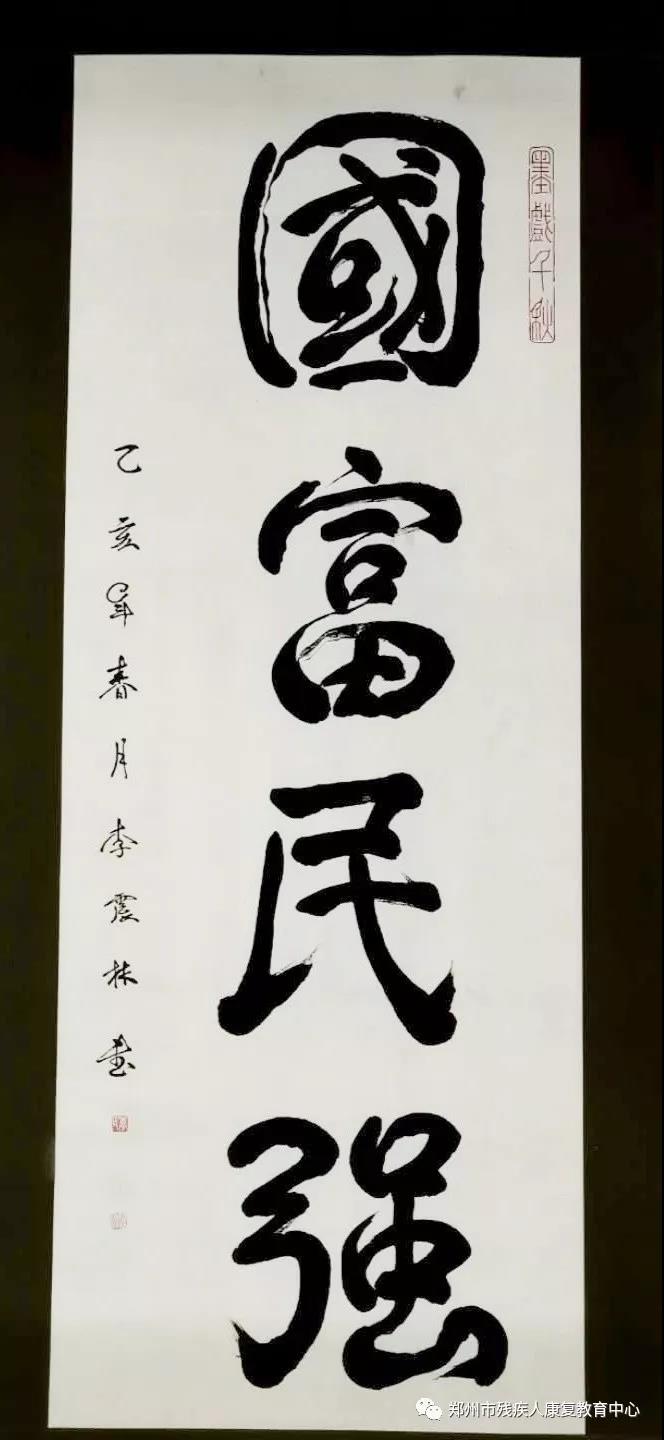 國富民强
墨戲千秋
乙亥年春月李震林书
郑州市残疾人康复教育中心